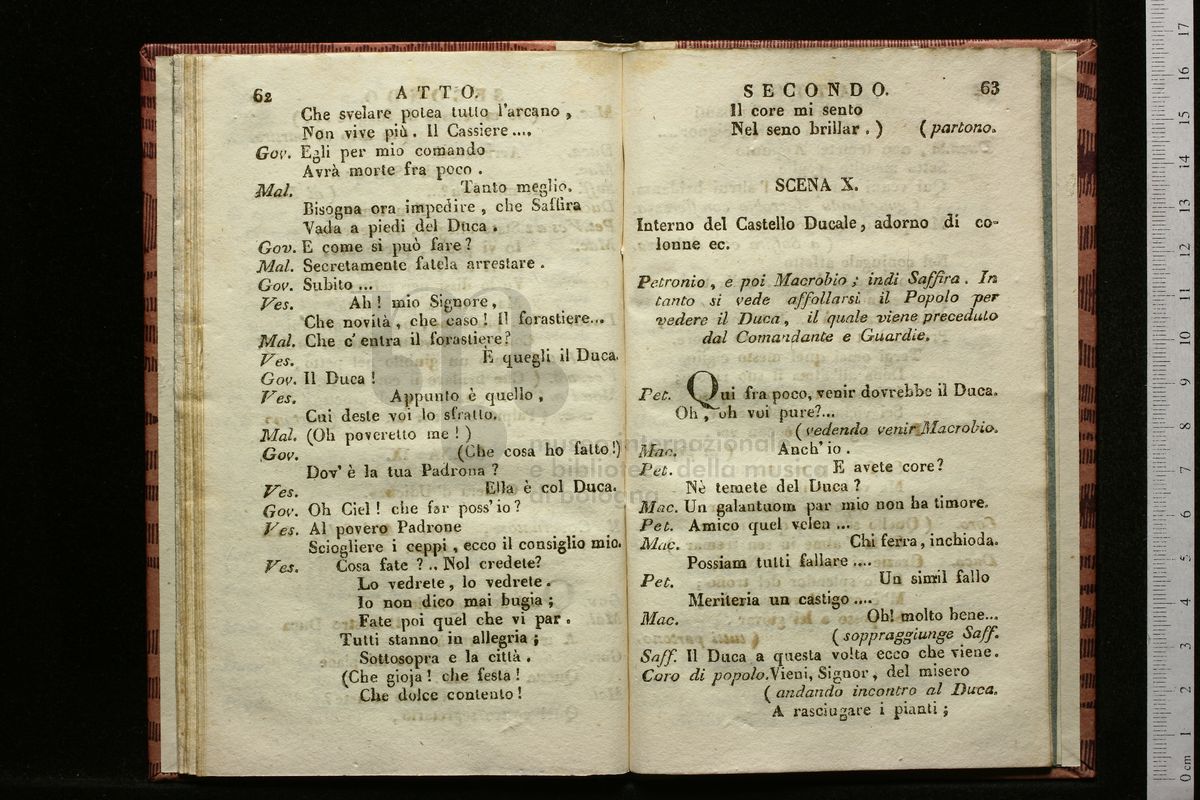 62
ATTO.
Che svelare potea tutto l'arcano,
Non vive più. Il Cassiere....
Gov. Egli per mio comando
Avrà morte fra poco.
Mal. Tanto meglio.
Bisogna ora impedire, che Saffira
Vada a piedi del Duca.
Gov. E come si può fare?
Mal. Secretamente fatela arrestare.
Gov. Subito...
Ves. Ah! mio Signore,
Che novità, che caso! Il forastiere...
Mal. Che c'entra il forastiere?
Ves. E quegli il Duca.
Gov. Il Duca!
Ves. Appunto è quello,
Cui deste voi lo sfratto.
Mal. (Oh poveretto me!)
Gov. (Che cosa ho fatto!)
Dov' è la tua Padrona?
Ves. Ella è col Duca.
Gov. Oh Ciel! che far poss'io?
Ves. Al povero Padrone
Sciogliere i ceppi, ecco il consiglio mio.
Ves. Cosa fate?.. Nol credete?
Lo vedrete, lo vedrete.
Io non dico mai bugia;
Fate poi quel che vi par.
Tutti stanno in allegria;
Sottosopra e la città.
(Che gioja! che festa!
Che dolce contento!
SECONDO.
63
Il core mi sento
Nel seno brillar.) (partono.
SCENA X.
Interno del Castello Ducale, adorno di co-
lonne ec.
Petronio, e poi Macrobio; indi Saffira. In
tanto si vede affollarsi il Popolo per
vedere il Duca, il quale viene preceduto
dal Comandante e Guardie.
Pet. Qui fra poco, venir dovrebbe il Duca.
Oh, oh voi pure?...
(vedendo venir Macrobio.
Mac. Anch' io.
Pet. E avete core?
Nè temete del Duca?
Mac. Un galantuom par mio non ha timore.
Pet. Amico quel velen...
Mac. Chi ferra, inchioda.
Possiam tutti fallare....
Pet. Un simil fallo
Meriteria un castigo....
Mac. Oh! molto bene...
(soppraggiunge Saff.
Saff. Il Duca a questa volta ecco che viene.
Coro di popolo. Vieni, Signor, del misero
(andando incontro al Duca.
A rasciugare i pianti;
museo internazionale
e biblioteca della musica
di bologna
17
16
15
14
13
12
11
10
9
8
7
6
5
4
3
2
1
0 cm